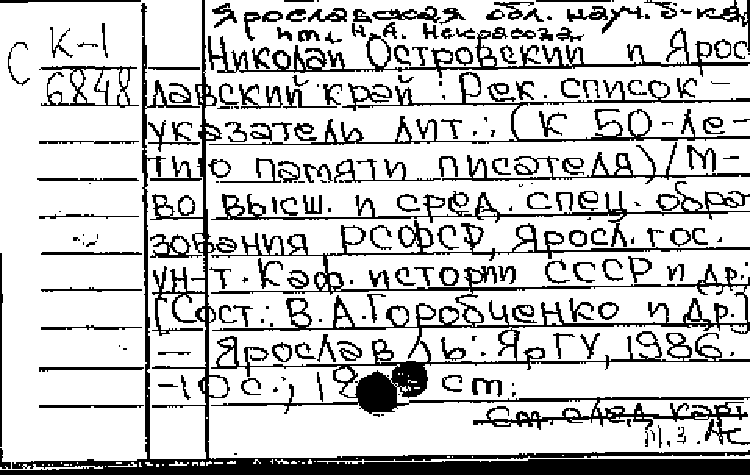 Ярославская обл. науч. б-ка
им. Н.А. Некрасова.
С К-1
6848
Николай Островский и Ярос
лавский край : Рек. список-
указатель лит.: (К 50-ле-
тию памяти писателя)/М-
во высш. и сред. спец. обра-
зования РСФСР, Яросл. гос.
ун-т. Каф. истории СССР и др.;
[Сост.: В.А. Горобченко и др.]
— Ярославль: ЯрГУ, 1986.
-10 с.; см.
См. след. карт
М.З.